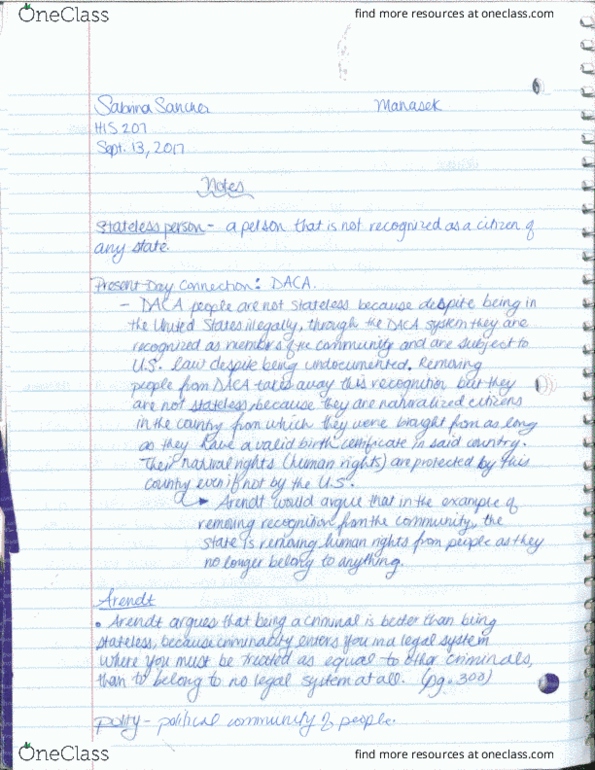 OneClass
find more resources at oneclass.com
Sabrina Sancher
Manasek
HIS 207
Sept. 13, 2017
Notes
Stateless person - a person that is not recognized as a citizen of
any state.
Present-Day Connection: DACA.
- DACA people are not stateless because despite being in
the United States illegally, through the DACA system they are
recognized as members of the community and are subject to
U.S. law despite being undocumented. Removing
people from DACA takes away this recognition but they
are not stateless, because they are naturalized citizens
in the country from which they were brought from as long
as they have a valid birth certificate in said country.
Their natural rights (human rights) are protected by this
country even if not by the U.S.
Arendt would argue that in the example of
removing recognition from the community, the
state is removing human rights from people as they
no longer belong to anything.
Arendt
• Arendt argues that being a criminal is better than being
stateless, because criminality enters you in a legal system
where you must be treated as equal to other criminals,
than to belong to no legal system at all. (pg. 300)
polity - political community of people.
OneClass
find more resources at oneclass.com